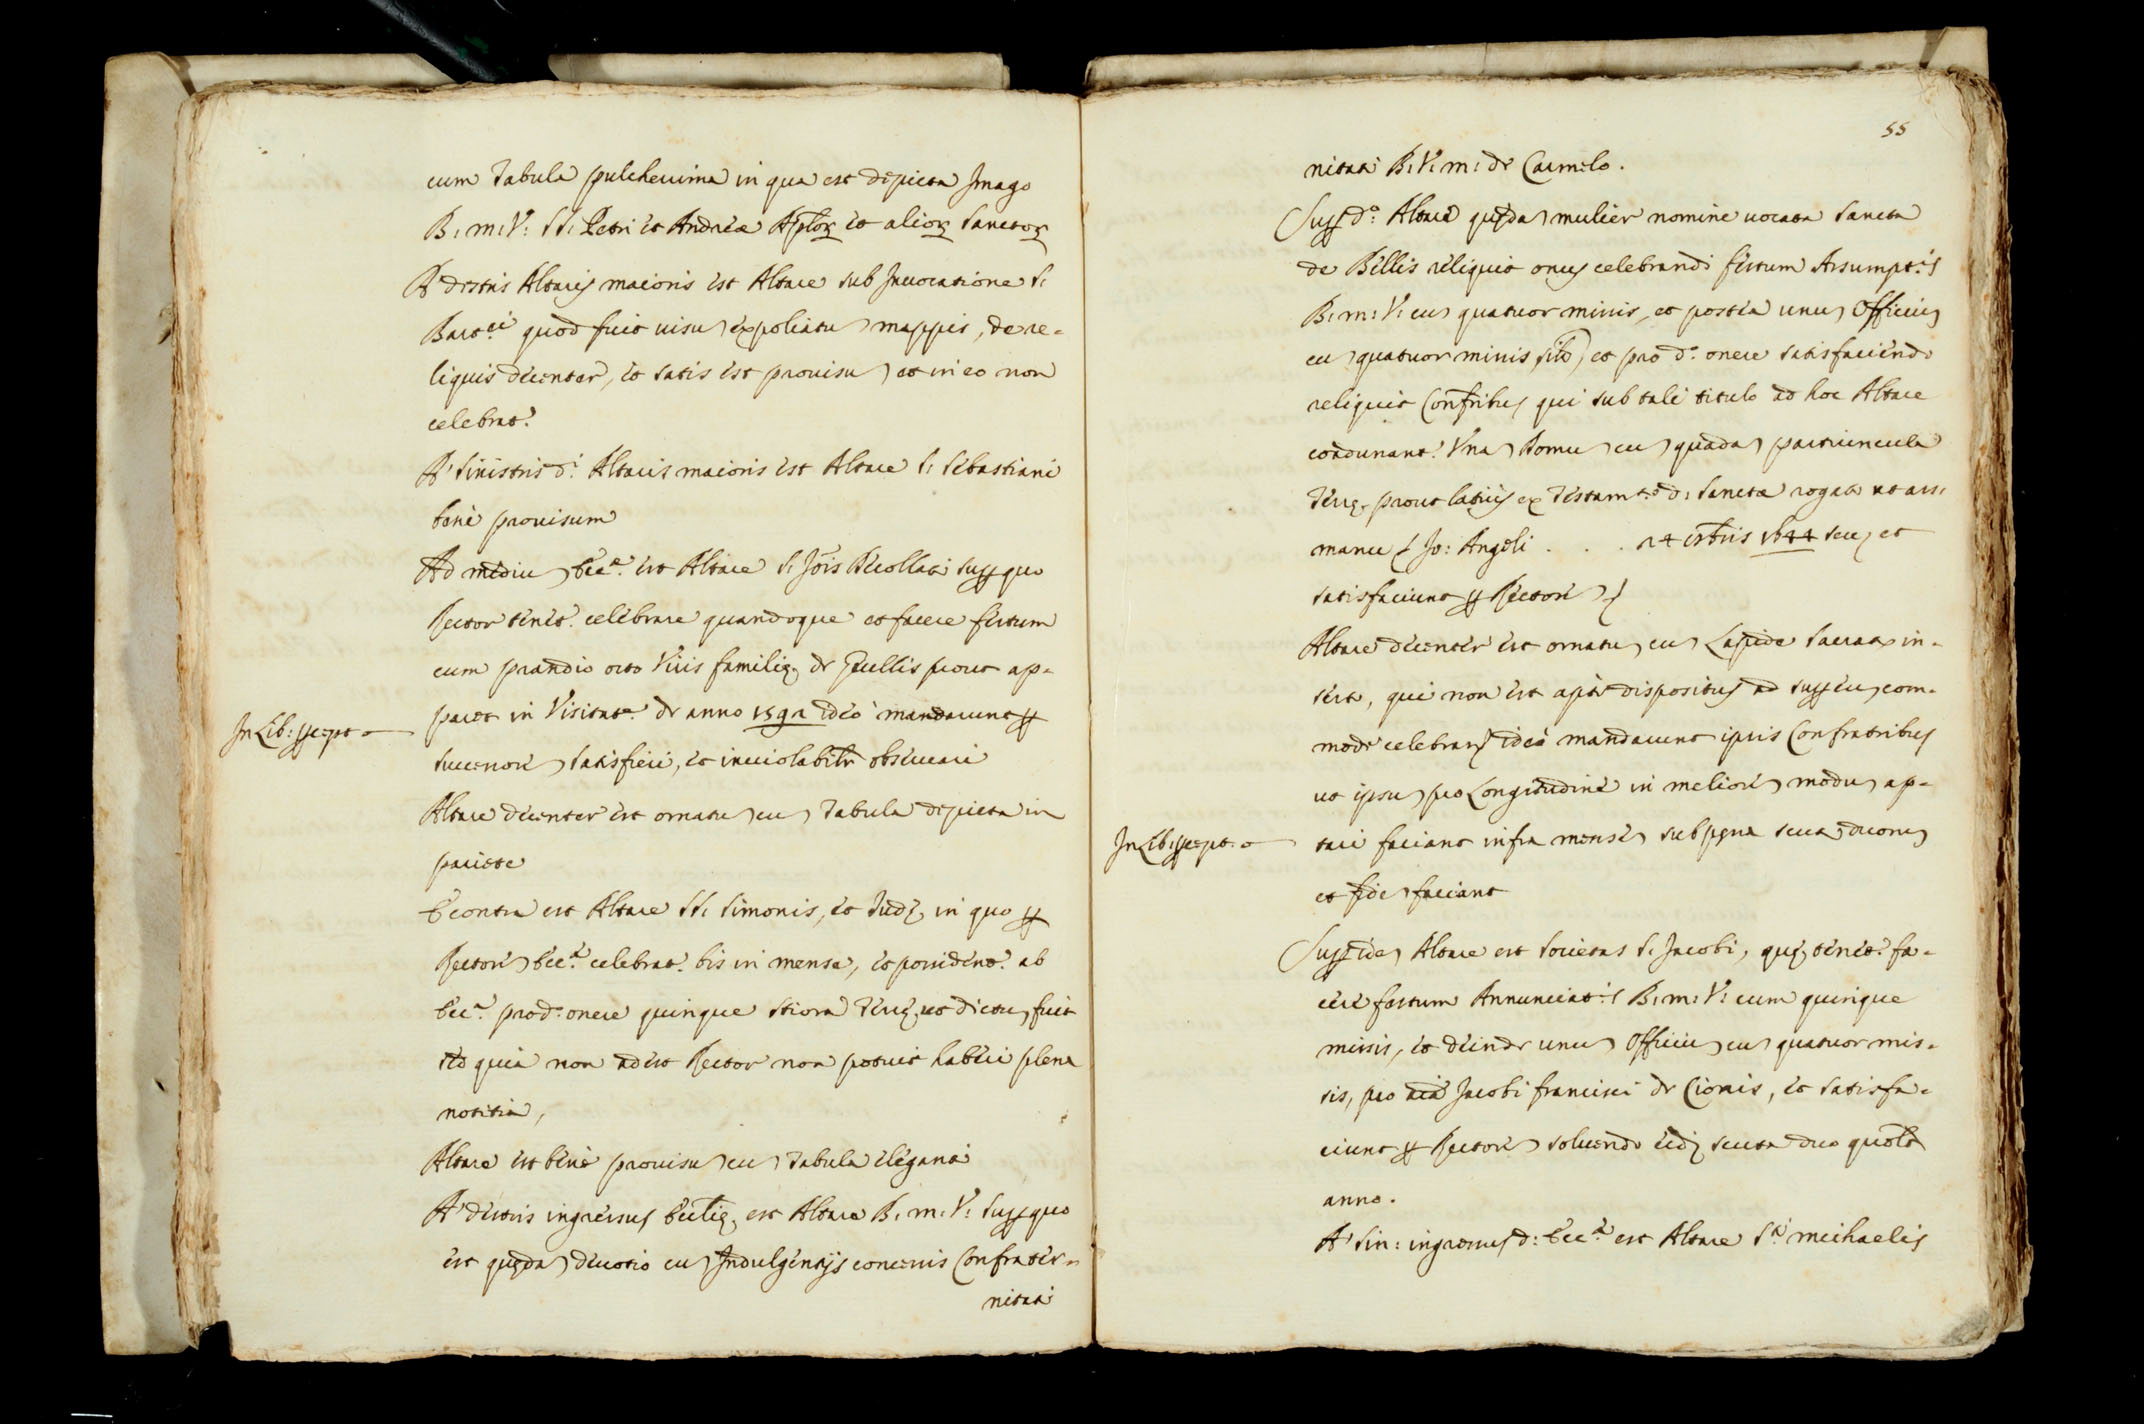 cum Tabula pulcherrima in qua est depicta Imago
B: m: V: SS. Petri et Andreæ Aplōꝝ et alioꝝ Sanctoꝝ
A dextris Altaris maioris est Altare sub Inuocatione S.
Bart.ei quod fuit uisu expoliatu mappis, de re-
liquis decenter, et satis est prouisu et in eo non
celebrat.
A' Sinistris d.i Altaris maioris est Altare S. Sebastiani
bene prouisum
Ad mediu Ecc.æ est Altare S. Jōis Decollati supp quo
Rector tenet. celebrare quandoque et facere festum
cum prandio octo Viris familię de Pellis prout ap-
paret in Visitat.e de anno 1592 ideo mandarunt p
In Lib: precept.
successore satisfieri, et inuiolabilr obseruari
Altare decenter est ornatu cu Tabula depicta in
pariete
E contra est Altare SS. Simonis, et Judę, in quo p
Rectore Ecc.æ celebrat. bis in mense, et prouident. ab
Ecc.a pro d.o onere quinque stiora Terrę, ut dictu fuit
sed quia non adest Rector non potuit haberi plena
notitia,
Altare est bene prouisu cu Tabula eleganti
A' dextris ingressus Ecclię, est Altare B. m: V: supp quo
est quęda deuotio cu Indulgentijs concessis Confrater-
nitati
55
nitati B: V: m: de Carmelo.
Supp d.o Altare quęda mulier nomine uocata Sancta
de Bellis reliquit onus celebrandi festum Assumpt.is
B: m: V: cu quatuor missis, et postea unu Officiu
cu quatuor missis silr et pro d.o onere satisfaciendo
reliquit Confribus qui sub tali titulo ad hoc Altare
coadunant. Una Domu cu quada particuncula
Terrę prout latius ex Testam.to d: Sanctæ rogat ut ass.
manu S Jo: Angeli . . . 24 8bris 1644 seu, et
satisfaciunt p Rectore
Altare decenter est ornatu cu Lapide sacrato in-
serto, qui non est apte dispositus ad supp eu com-
mode celebrar ideo mandarunt ipsis Confratribus
ut ipsu pro Longitudine in meliore modu ap-
In Lib: precept.
tari faciant infra mense sub pęna scuta duoru
et fide faciant
Supp ide Altare est Societas S. Jacobi, quę tenet. fa-
cere festum Annunciat.is B: m: V: cum quinque
missis, et deinde unu Officiu cu quatuor mis-
sis, pro aia Jacobi francisci de Cionis, et satisfa-
ciunt p Rectore soluendo eidę scuta duo quolt
anno.
A' Sin: ingressus d: Ecc.æ est Altare S.ti michaelis